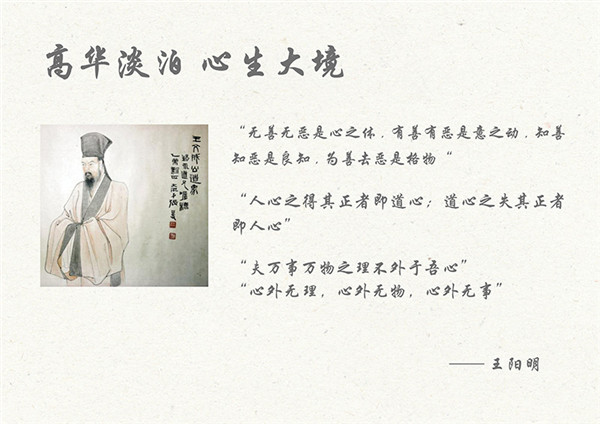 高华淡泊 心生大境
“无善无恶是心之体，有善有恶是意之动，知善
知恶是良知，为善去恶是格物“
“人心之得其正者即道心；道心之失其正者
即人心”
“夫万事万物之理不外于吾心”
“心外无理，心外无物，心外无事”
—— 王阳明